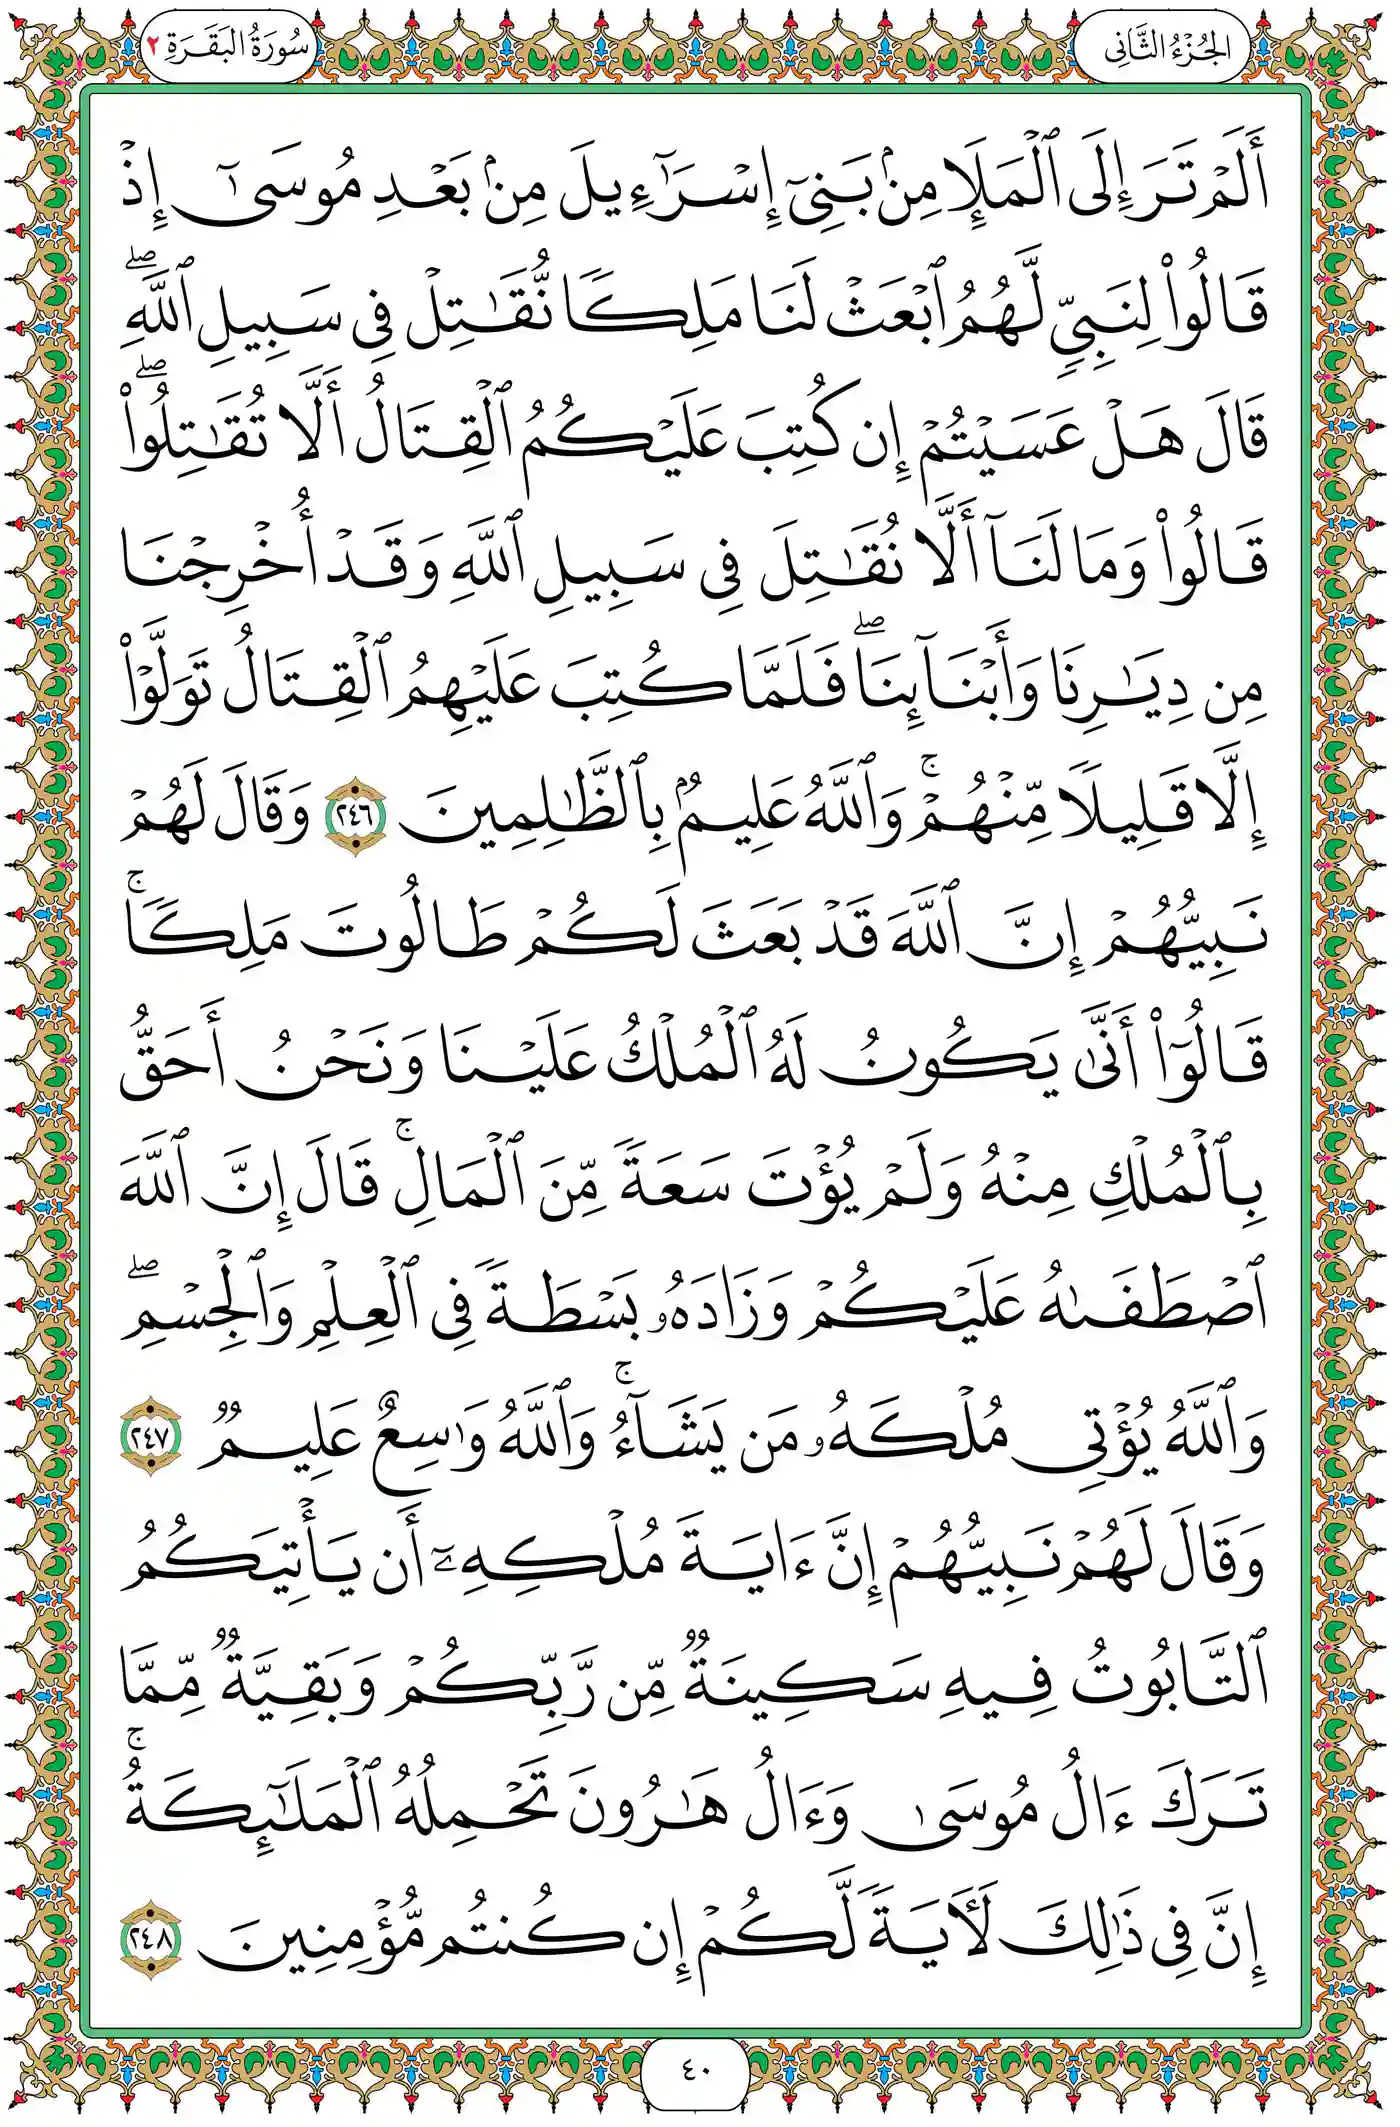 الجُزْءُ الثَّانِى
سُورَةُ البَقَرَةِ ٢
أَلَمْ تَرَ إِلَى ٱلْمَلَإِ مِنۢ بَنِىٓ إِسْرَٰٓءِيلَ مِنۢ بَعْدِ مُوسَىٰٓ إِذْ
قَالُوا۟ لِنَبِىٍّ لَّهُمُ ٱبْعَثْ لَنَا مَلِكًا نُّقَٰتِلْ فِى سَبِيلِ ٱللَّهِ ۖ
قَالَ هَلْ عَسَيْتُمْ إِن كُتِبَ عَلَيْكُمُ ٱلْقِتَالُ أَلَّا تُقَٰتِلُوا۟ ۖ
قَالُوا۟ وَمَا لَنَآ أَلَّا نُقَٰتِلَ فِى سَبِيلِ ٱللَّهِ وَقَدْ أُخْرِجْنَا
مِن دِيَٰرِنَا وَأَبْنَآئِنَا ۖ فَلَمَّا كُتِبَ عَلَيْهِمُ ٱلْقِتَالُ تَوَلَّوْا۟
إِلَّا قَلِيلًا مِّنْهُمْ ۚ وَٱللَّهُ عَلِيمٌۢ بِٱلظَّٰلِمِينَ ٢٤٦ وَقَالَ لَهُمْ
نَبِيُّهُمْ إِنَّ ٱللَّهَ قَدْ بَعَثَ لَكُمْ طَالُوتَ مَلِكًا ۚ
قَالُوٓا۟ أَنَّىٰ يَكُونُ لَهُ ٱلْمُلْكُ عَلَيْنَا وَنَحْنُ أَحَقُّ
بِٱلْمُلْكِ مِنْهُ وَلَمْ يُؤْتَ سَعَةً مِّنَ ٱلْمَالِ ۚ قَالَ إِنَّ ٱللَّهَ
ٱصْطَفَىٰهُ عَلَيْكُمْ وَزَادَهُۥ بَسْطَةً فِى ٱلْعِلْمِ وَٱلْجِسْمِ ۖ
وَٱللَّهُ يُؤْتِى مُلْكَهُۥ مَن يَشَآءُ ۚ وَٱللَّهُ وَٰسِعٌ عَلِيمٌ ٢٤٧
وَقَالَ لَهُمْ نَبِيُّهُمْ إِنَّ ءَايَةَ مُلْكِهِۦٓ أَن يَأْتِيَكُمُ
ٱلتَّابُوتُ فِيهِ سَكِينَةٌ مِّن رَّبِّكُمْ وَبَقِيَّةٌ مِّمَّا
تَرَكَ ءَالُ مُوسَىٰ وَءَالُ هَٰرُونَ تَحْمِلُهُ ٱلْمَلَٰٓئِكَةُ ۚ
إِنَّ فِى ذَٰلِكَ لَـَٔايَةً لَّكُمْ إِن كُنتُم مُّؤْمِنِينَ ٢٤٨
٤٠